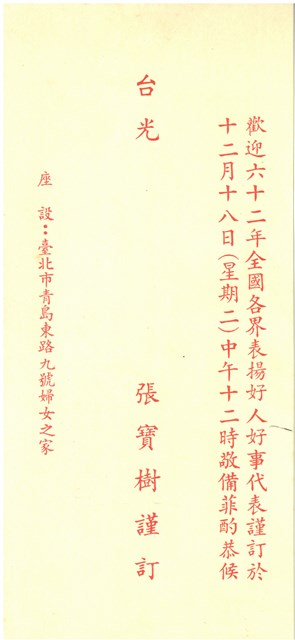 歡迎六十二年全國各界表揚好人好事代表謹訂於
十二月十八日(星期二)中午十二時敬備菲酌恭候
台光
張寶樹謹訂
座設：臺北市青島東路九號婦女之家